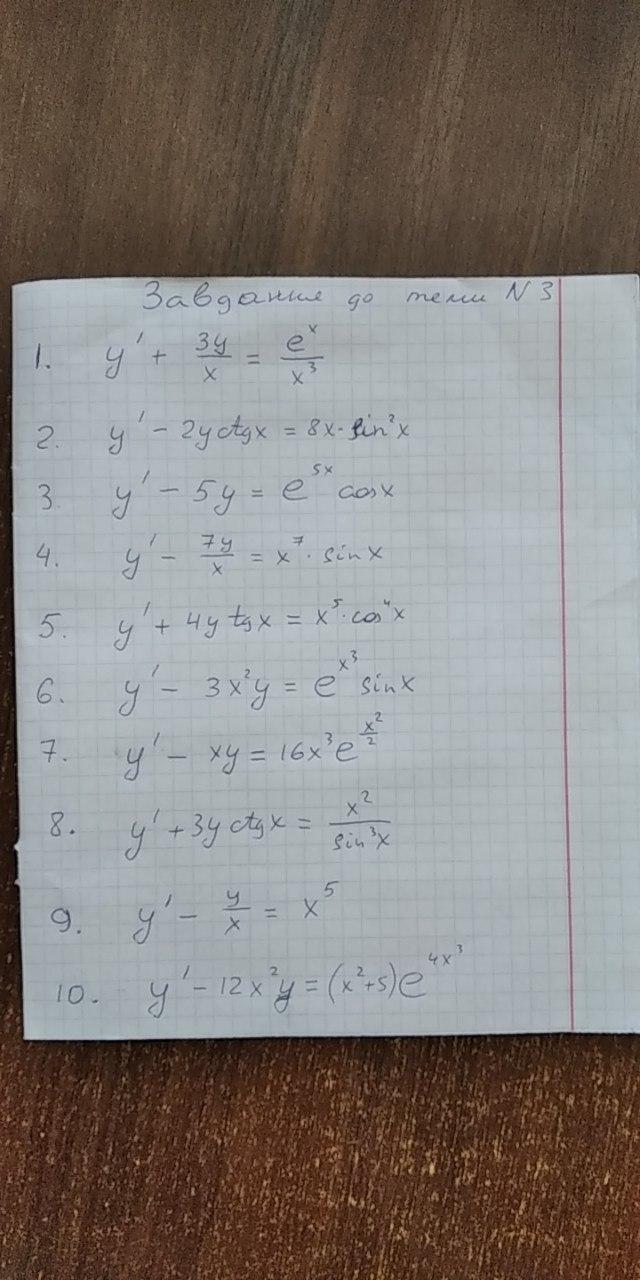 Завдання до теми N 3
1. y' + 3y/x = e^x/x^3
2. y' - 2y ctgx = 8x·sin^2x
3. y' - 5y = e^5x cosx
4. y' - 7y/x = x^7 · sinx
5. y' + 4y tgx = x^5·cos^4x
6. y' - 3x^2y = e^x^3 sinx
7. y' - xy = 16x^3e^x^2/2
8. y' + 3y ctgx = x^2/sin^3x
9. y' - y/x = x^5
10. y' - 12x^2y = (x^2+5)e^4x^3